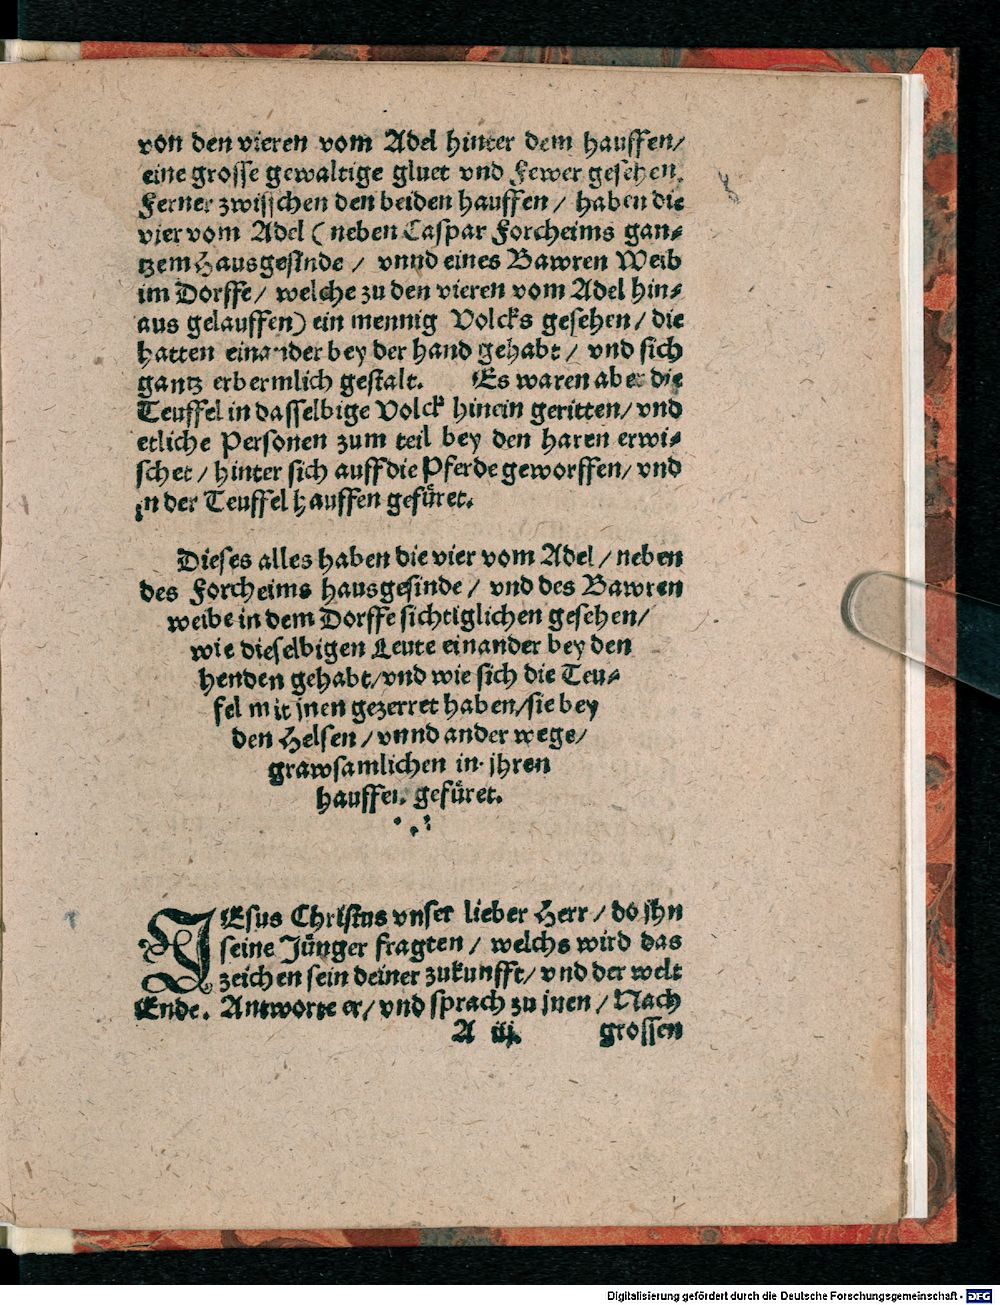 von den vieren vom Adel hinter dem hauffen/
eine grosse gewaltige gluet vnd Fewer gesehen.
Ferner zwisschen den beiden hauffen / haben die
vier vom Adel ( neben Caspar Forcheims gan⸗
tzem Hausgesinde / vnnd eines Bawren Weib
im Dorffe / welche zu den vieren vom Adel hin⸗
aus gelauffen) ein mennig Volcks gesehen / die
hatten einander bey der hand gehabt / vnd sich
gantz erbermlich gestalt. Es waren aber die
Teuffel in dasselbige Volck hinein geritten/ vnd
etliche Personen zum teil bey den haren erwi⸗
schet / hinter sich auff die Pferde geworffen/ vnd
in der Teuffel hauffen gefüret.
Dieses alles haben die vier vom Adel / neben
des Forcheims hausgesinde / vnd des Bawren
weibe in dem Dorffe sichtiglichen gesehen/
wie dieselbigen Leute einander bey den
henden gehabt/vnd wie sich die Teu⸗
fel mit jnen gezerret haben/sie bey
den Helsen / vnnd ander wege/
grawsamlichen in jhren
hauffen gefüret.
JEsus Christus vnser lieber Herr / do jhn
seine Jünger fragten / welchs wird das
zeichen sein deiner zukunfft/ vnd der welt
Ende. Antworte er/ vnd sprach zu jnen / Nach
A iij. grossen
Digitalisierung gefördert durch die Deutsche Forschungsgemeinschaft - DFG